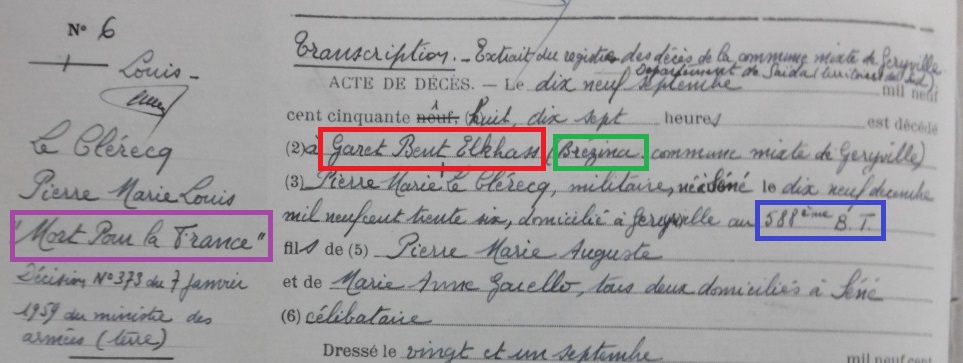 N° 6
Louis -
Le Clérecq
Pierre Marie Louis
"Mort Pour la France"
Décision N° 373 du 7 Janvier
1959 du ministre des
armées (terre)
Transcription. - Extrait du registre des décès de la commune mixte de Géryville
Département de Saida territoires du Sud)
ACTE DE DÉCÈS. - Le dix neuf septembre mil neuf
cent cinquante neuf, huit, dix sept heures est décédé
(2) à Garet Bent Elkhass (Brézina commune mixte de Géryville)
(3) Pierre Marie Le Clérecq, militaire, né à Séné le dix neuf décembre
mil neuf cent trente six, domicilié à Geryville au 588ème B.T.
fils de (5) Pierre Marie Auguste
et de Marie Anne Gacello, tous deux domiciliés à Séné
(6) célibataire
Dressé le vingt et un septembre mil neuf cent